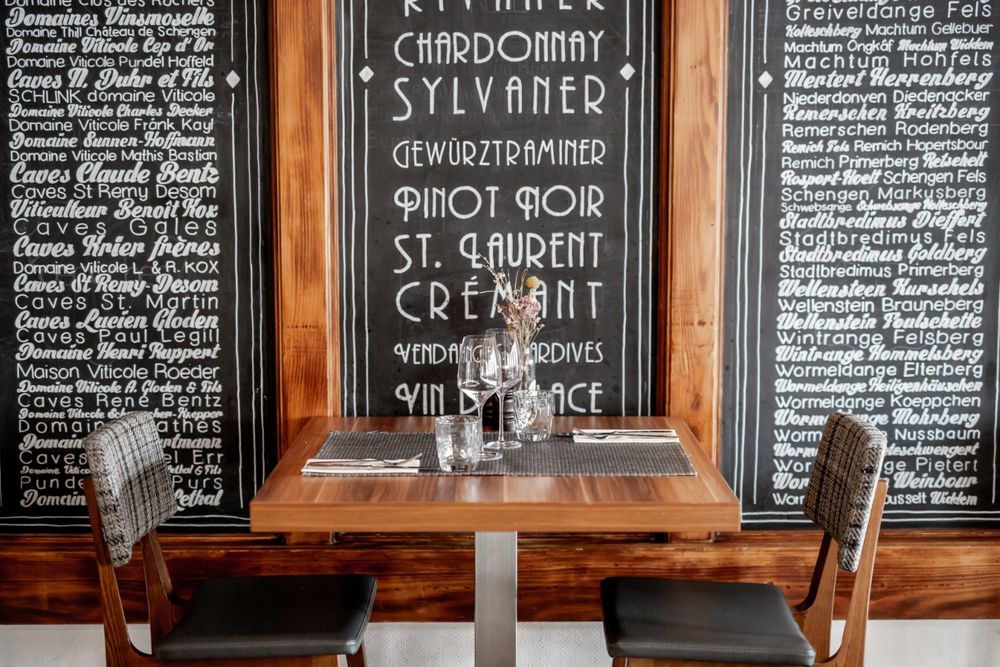 Domaine Clos des Rochers
Domaines Vinsmoselle
Domaine Thill Château de Schengen
Domaine Viticole Cep d'Or
Domaine Viticole Pundel Hoffeld
Caves N. Duhr et Fils
SCHLINK domaine Viticole
Domaine Viticole Charles Decker
Domaine Viticole Fränk Kayl
Domaine Sunnen-Hoffmann
Domaine Viticole Mathis Bastian
Caves Claude Bentz
Caves St Remy Desom
Viticulteur Benoit Kox
Caves Gales
Caves Krier frères
Domaine Viticole L. & R. KOX
Caves St Remy-Desom
Caves St. Martin
Caves Lucien Gloden
Caves Paul Legill
Domaine Henri Ruppert
Maison Viticole Roeder
Domaine Viticole A. Gloden & Fils
Caves René Bentz
Domaine
Domaine Mathes
Caves
Pundel
Domaine
RIVANER
CHARDONNAY
SYLVANER
GEWÜRZTRAMINER
PINOT NOIR
ST. LAURENT
CRÉMANT
VENDANGES TARDIVES
VIN DE GLACE
Greiveldange Fels
Machtum Gellebuer
Machtum Ongkäf Machtum Widdem
Machtum Hohfels
Mertert Herrenberg
Niederdonven Diedenacker
Remerschen Kreitzberg
Remerschen Rodenberg
Remich Fels Remich Hopertsbour
Remich Primerberg Retschelt
Rosport-Hoelt Schengen Fels
Schengen Markusberg
Schwebsange Schwebsange Kolteschberg
Stadtbredimus Dieffert
Stadtbredimus Fels
Stadtbredimus Goldberg
Stadtbredimus Primerberg
Wellenstein Kurschels
Wellenstein Brauneberg
Wellenstein Foulschette
Wintrange Felsberg
Wintrange Hommelsberg
Wormeldange Elterberg
Wormeldange Heiligenhäuschen
Wormeldange Koeppchen
Wormeldange Mohrberg
Nussbaum
Pietert
Weinbour
Widdem